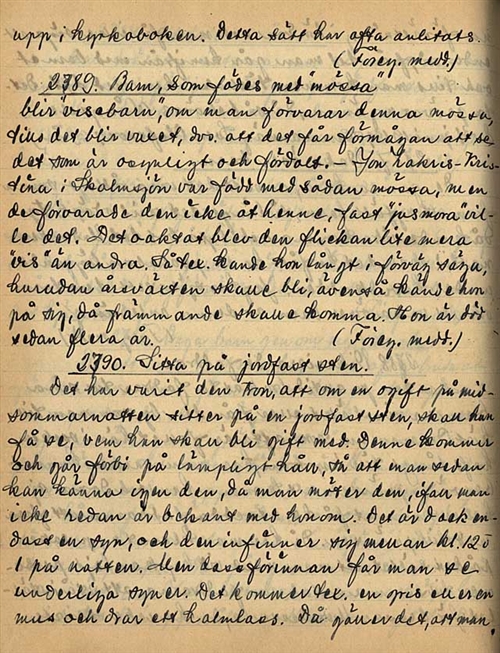 upp i kyrkoboken. Detta sätt har ofta anlitats.
(Föreg. medd.)
2789. Barn, som födes med "mössa"
blir "visebarn", om man förvarar denna mössa,
tills det blir vuxet, dvs. att det får förmågan att se
det som är osynligt och fördolt. – Jon Lakris-Kris-
tina i Skalmsjön var född med sådan mössa, men
de förvarade den icke åt henne, fast "jusmora" vil-
le det. Det oaktat blev den flickan lite mera
"vis" än andra. Så tex. kunde hon långt i förväg säga,
hurudan årsväxten skulle bli, ävenså kände hon
på sig, då främmande skulle komma. Hon är död
sedan flera år. (Föreg. medd.)
2790. Sitta på jordfast sten.
Det har varit den tron, att om en ogift på mid-
sommarnatten sitter på en jordfast sten, skall han
få se, vem han skall bli gift med. Denne kommer
och går förbi på lämpligt håll, så att man sedan
kan känna igen den, då man möter den, ifall man
icke redan är bekant med honom. Det är dock en-
dast en syn, och den infinner sig mellan kl. 12 o
1 på natten. Men dessförinnan får man se
underliga syner. Det kommer tex. en gris eller en
mus och drar ett halmlass. Då gäller det, att man